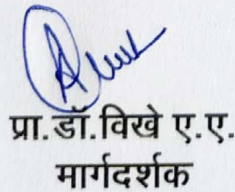 प्रा.डॉ.विखे ए.ए.
मार्गदर्शक